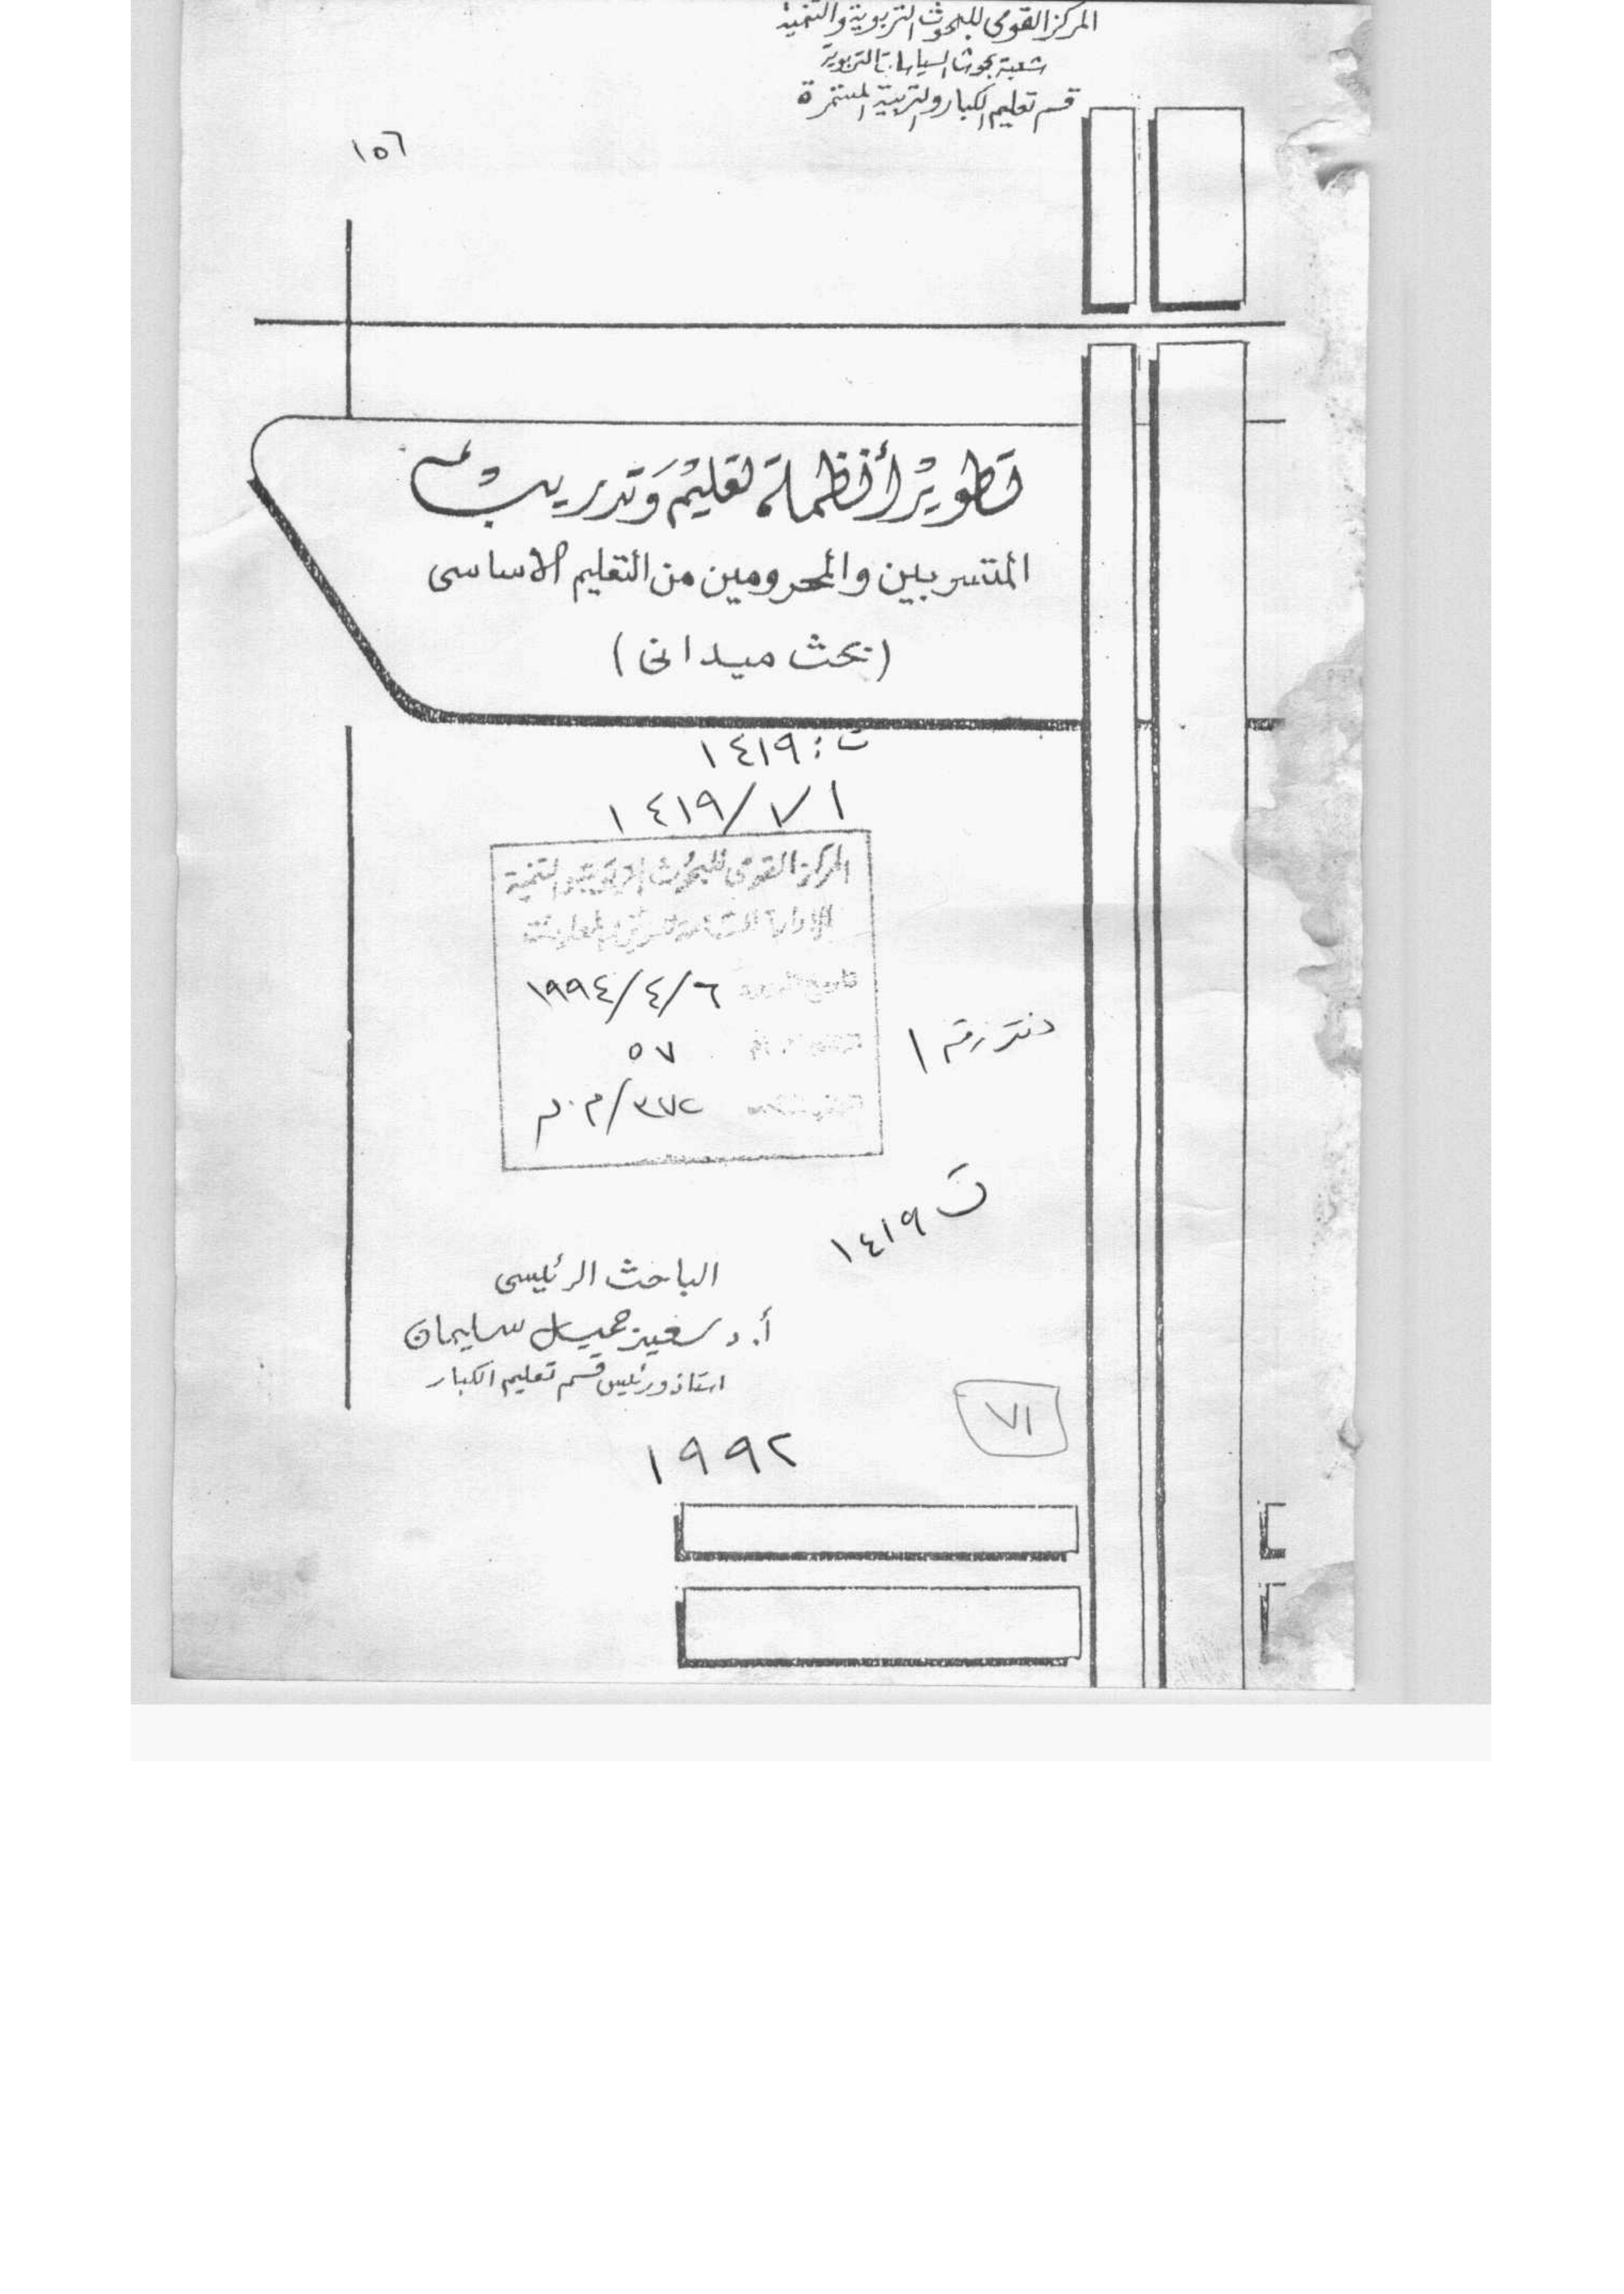 المركز القومى للبحوث التربوية والتنمية
شعبة بحوث السياسات التربوية
قسم تعليم الكبار والتربية المستمرة
١٥٦
تطوير أنظمة تعليم وتدريب
المتسربين والمحرومين من التعليم الأساسى
(بحث ميدانى)
ت : ١٤١٩
١٤١٩/٧١
المركز القومى للبحوث التربوية والتنمية
١٩٩٤/٤/٦
٥٧
٣٧٢/م.
دفتر رقم ١
ت ١٤١٩
الباحث الرئيسى
أ. د. سعيد جميل سليمان
استاذ ورئيس قسم تعليم الكبار
٧١
١٩٩٢